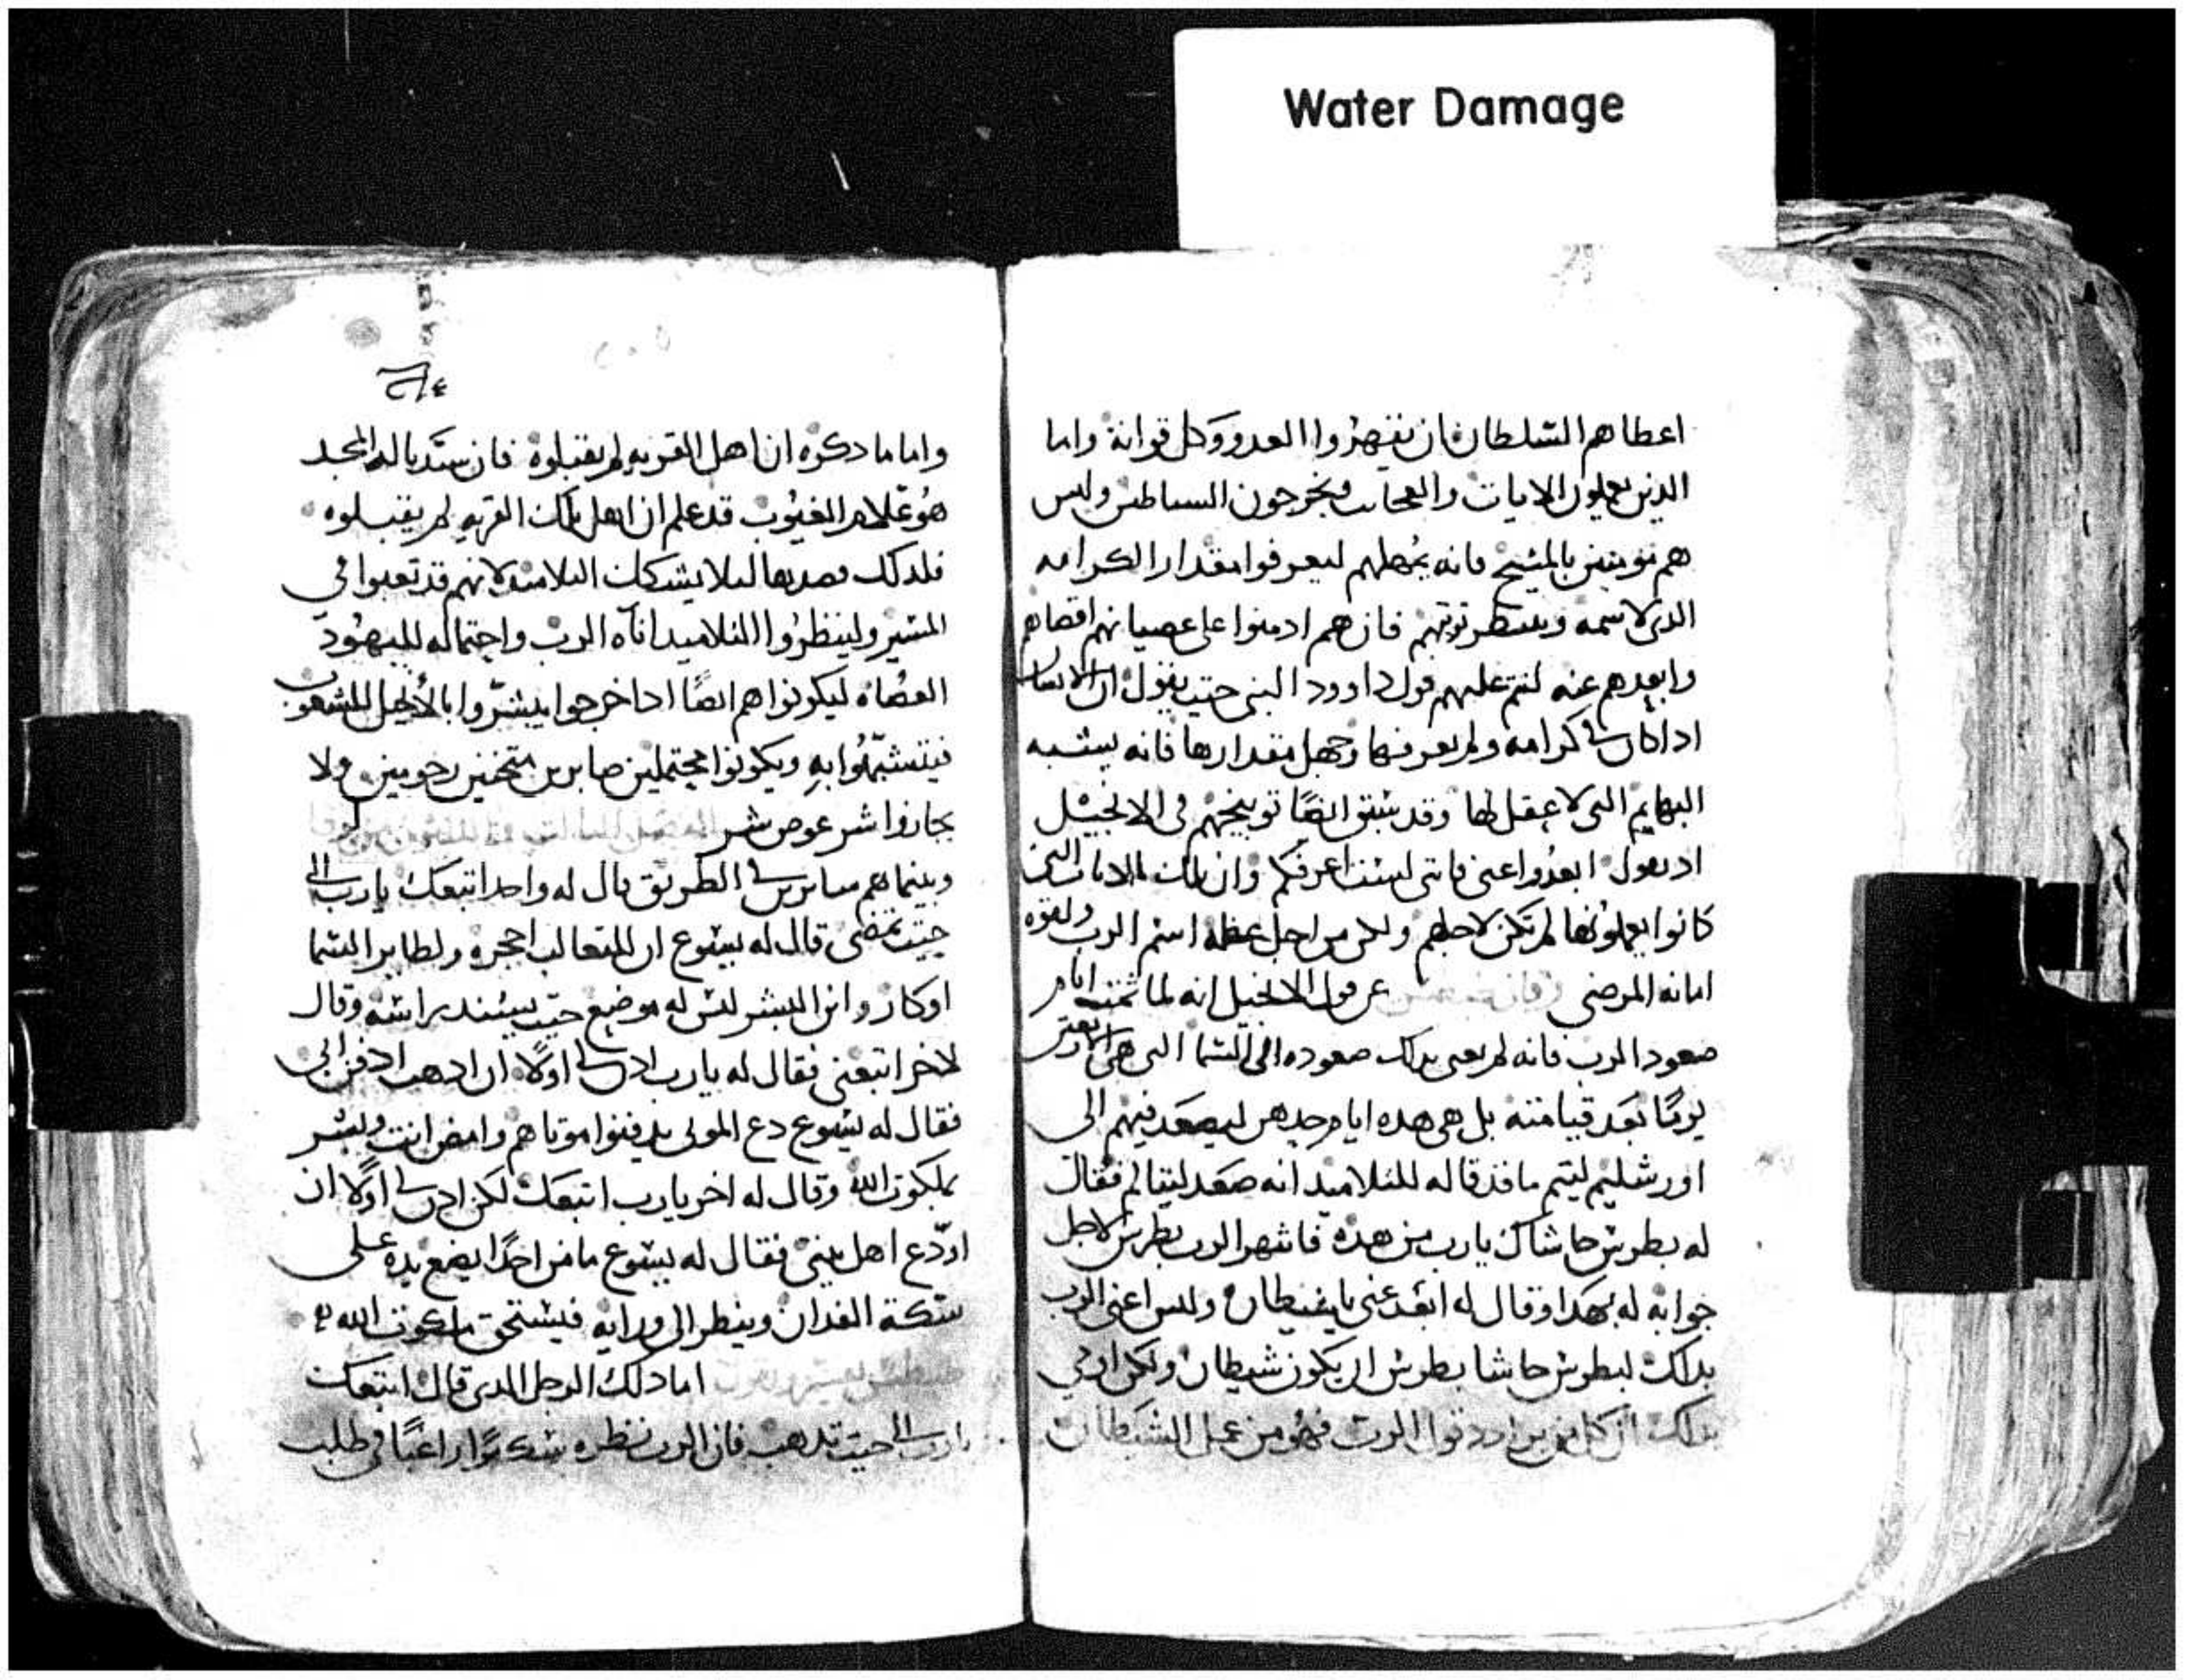 Water Damage
اعطاهم السلطان ان يقهروا العدو وكل قواته واما
الذين يعملون الايات والعجائب ويخرجون الشياطين وليس
هم مومنين بالمسيح فانه يمهلهم ليعرفوا مقدار الكرامه
الذي لاسمه وينتظر توبتهم فان هم ادمنوا على عصيانهم اقصاهم
وابعدهم عنه لتتم عليهم قول داوود النبي حيت يقول ان الانسان
اذا كان في كرامه ولم يعرفها وجهل مقدارها فانه يشبه
البهايم التي لا عقل لها وقد سبق ايضًا توبيخهم في الانجيل
اذ يقول ابعدوا عني فانني لست اعرفكم وان تلك الايات التي
كانوا يعملونها لم تكن لاجلهم ولكن من اجل عظم اسم الرب ولقوه
امانه المرضى عن قول الانجيل انه لما تمت ايام
صعود الرب فانه لم يعني بذلك صعوده الى السما التي هي الاربعين
يومًا بعد قيامته بل هي هذه ايام وحدهن ليصعد فيهم الى
اورشليم ليتم ما قد قاله للتلاميد انه صعد ليتالم فقال
له بطرس حاشاك يارب من هذه فانتهر الرب بطرس لاجل
جوابه له بهكدا وقال له ابعد عني يا شيطان وليس اعني الرب
بدلك لبطرس حاشا بطرس ان يكون شيطان ولكن ارى
بدلك ان كل من يرادد قول الرب فهو من عمل الشيطان
واما ما دكره ان اهل القريه لم يقبلوه فان سيدنا له المجد
هو علام الغيوب قد علم ان اهل تلك القريه لم يقبلوه
فلدلك قصدها ليلا يشكك التلاميد لانهم قد تعبوا في
المسير ولينظروا التلاميد اناه الرب واحتماله لليهود
العصاه ليكونوا هم ايضًا اذا خرجوا يبشروا بالانجيل للشعوب
فيتشبهوا به ويكونوا محتملين صابرين متحننين رحومين ولا
يجازوا شر عوض شر
وبينما هم سايرين في الطريق قال له واحد اتبعك يارب الى
حيت تمضي قال له يسوع ان للتعالب احجره ولطاير السما
اوكار وابن البشر ليس له موضع حيت يسند راسه وقال
لاخر اتبعني فقال له يارب ادن لي اولًا ان ادهب ادفن ابي
فقال له يسوع دع الموتى يدفنوا موتاهم وامض انت وبشر
بملكوت الله وقال له اخر يارب اتبعك لكن ادن لي اولًا ان
اودع اهل بيتي فقال له يسوع ما من احدًا يضع يده على
سكة الفدان وينظر الى ورايه فيستحق ملكوت الله
اما دلك الرجل الدي قال اتبعك
يارب الى حيت تدهب فان الرب نظره راغبًا في طلب